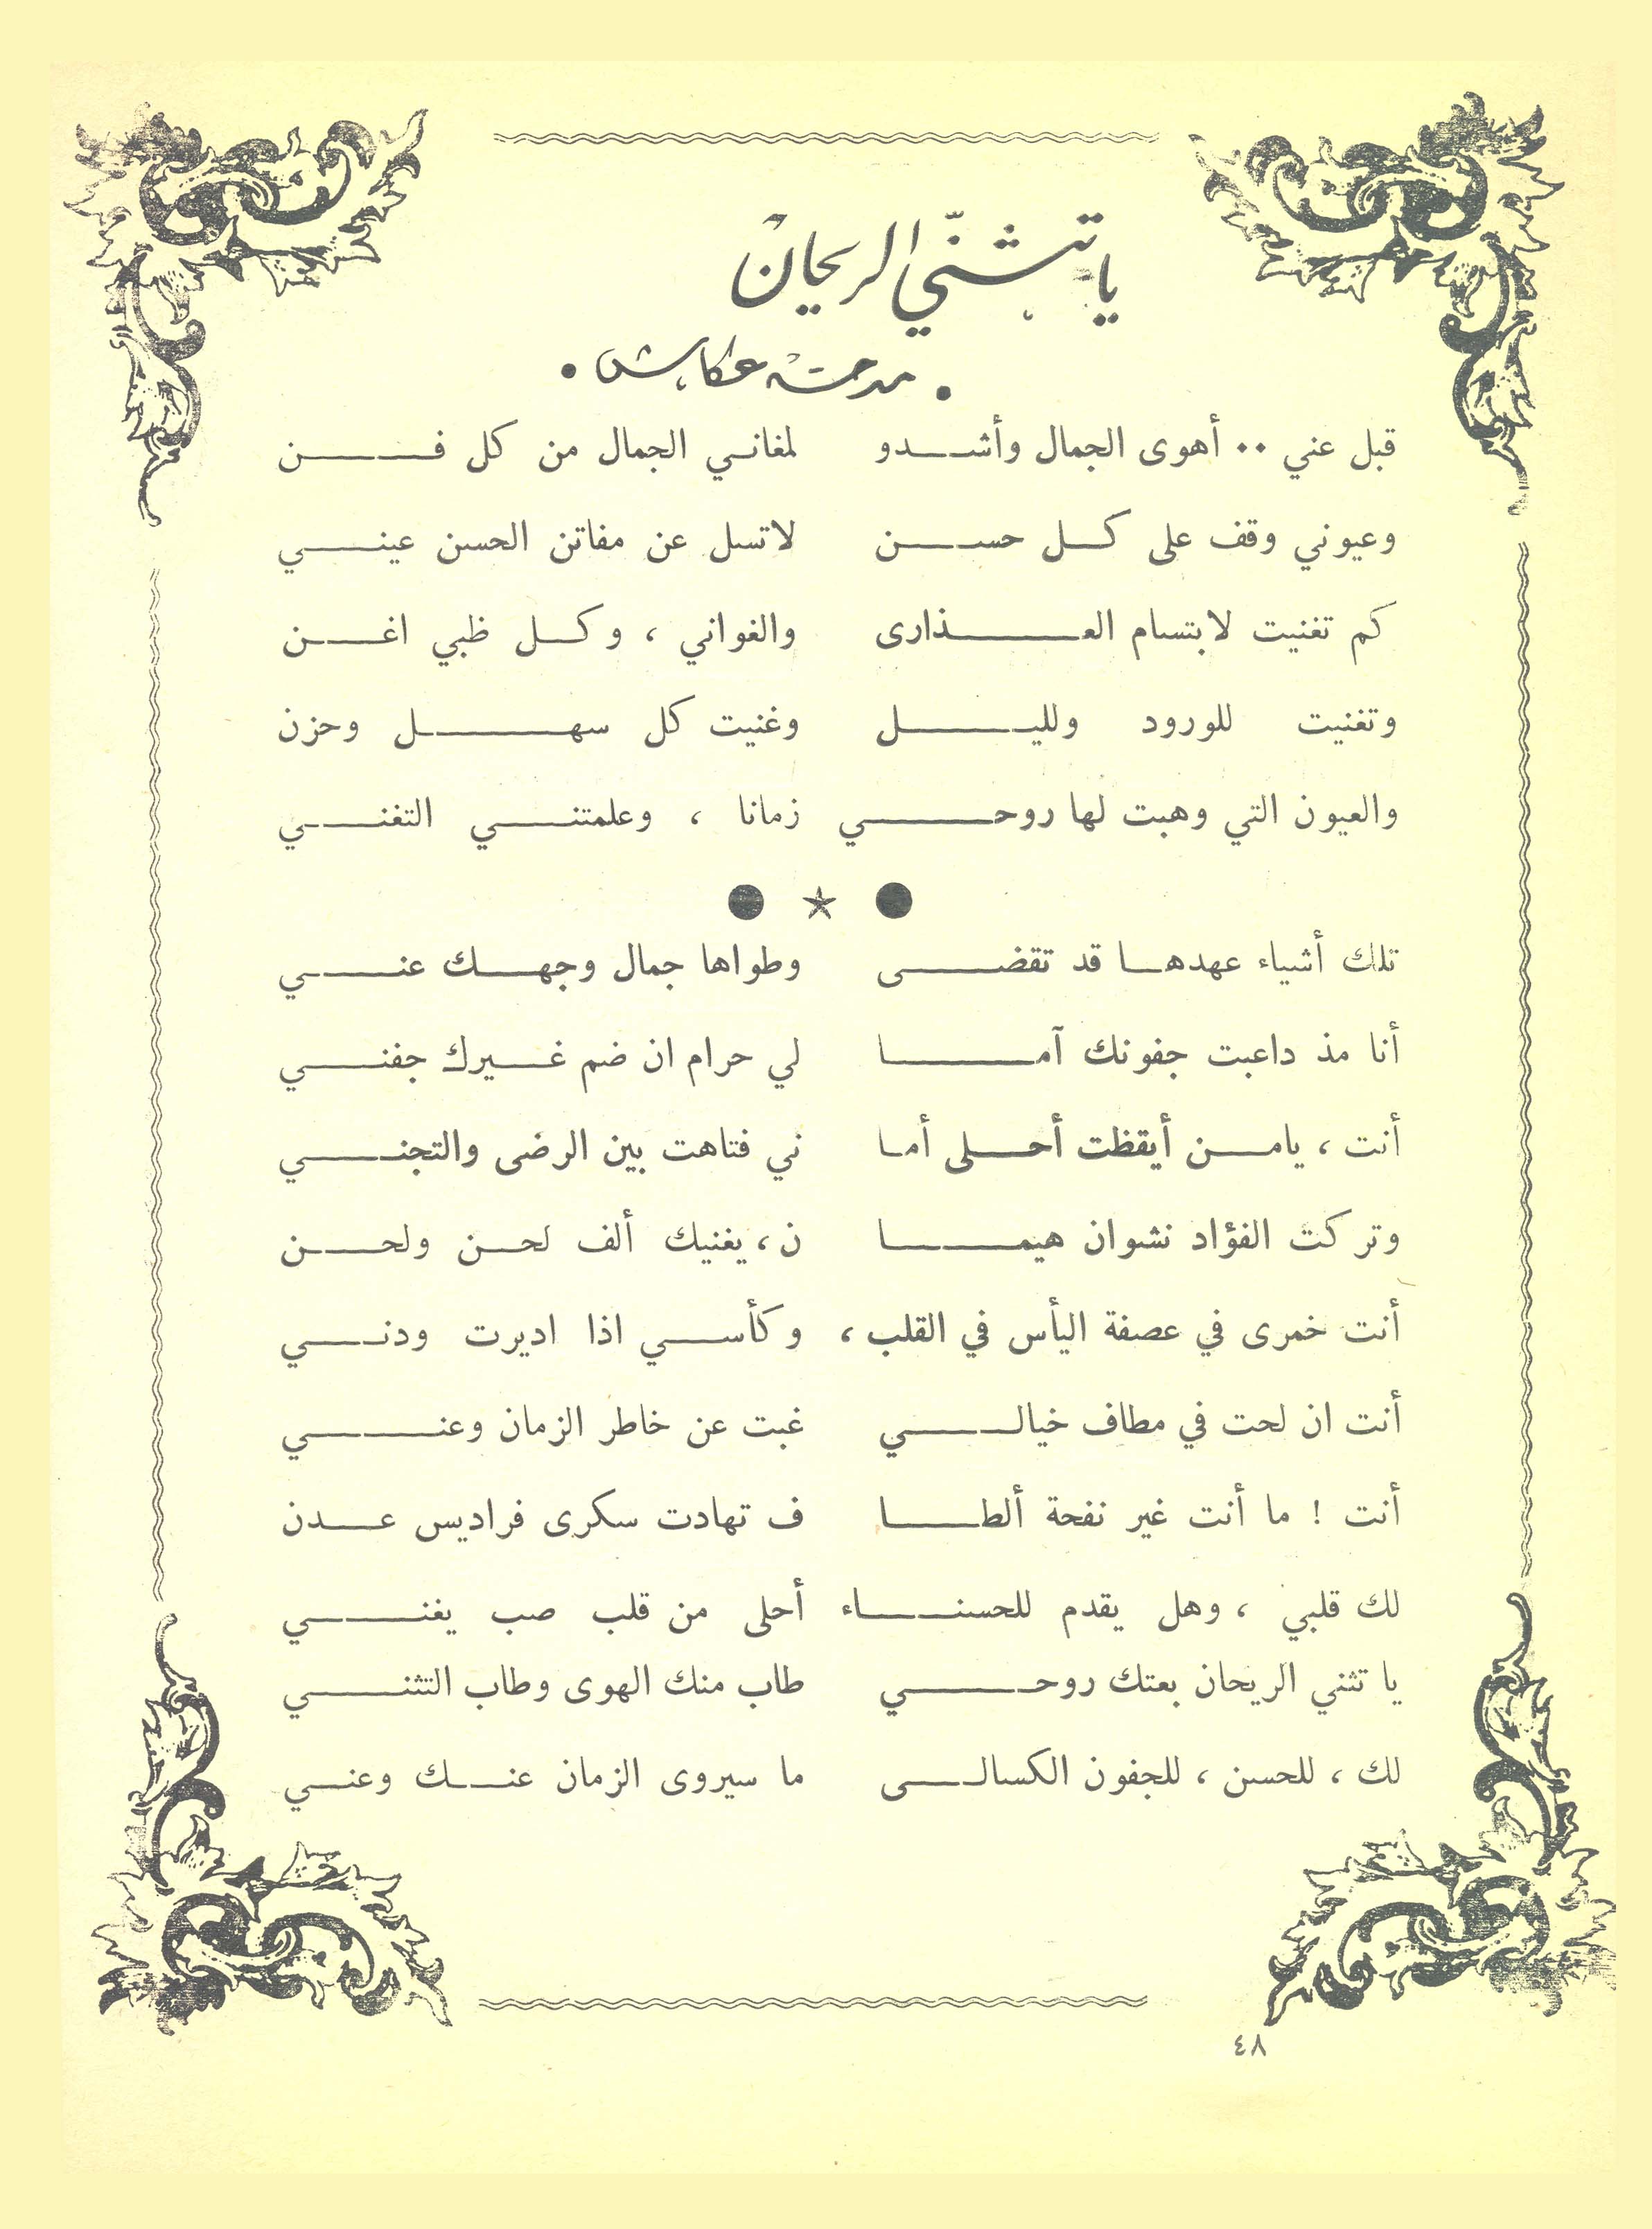 يا تثنّي الريحان
• مدحة عكاش •
قبل عني ٠٠ أهوى الجمال وأشدو لمغاني الجمال من كل فن
وعيوني وقف على كل حسن لاتسل عن مفاتن الحسن عيني
كم تغنيت لابتسام العذارى والغواني ، وكل ظبي اغن
وتغنيت للورود ولليل وغنيت كل سهل وحزن
والعيون التي وهبت لها روحي زمانا ، وعلمتني التغني
تلك أشياء عهدها قد تقضى وطواها جمال وجهك عني
أنا مذ داعبت جفونك آما لي حرام ان ضم غيرك جفني
أنت ، يامن أيقظت أحلى أما ني فتاهت بين الرضى والتجني
وتركت الفؤاد نشوان هيما ن ، يغنيك ألف لحن ولحن
أنت خمرى في عصفة اليأس في القلب ، وكأسي اذا اديرت ودني
أنت ان لحت في مطاف خيالي غبت عن خاطر الزمان وعني
أنت ! ما أنت غير نفحة ألطا ف تهادت سكرى فراديس عدن
لك قلبي ، وهل يقدم للحسناء أحلى من قلب صب يغني
يا تثني الريحان بعتك روحي طاب منك الهوى وطاب التثني
لك ، للحسن ، للجفون الكسالى ما سيروى الزمان عنك وعني
٤٨